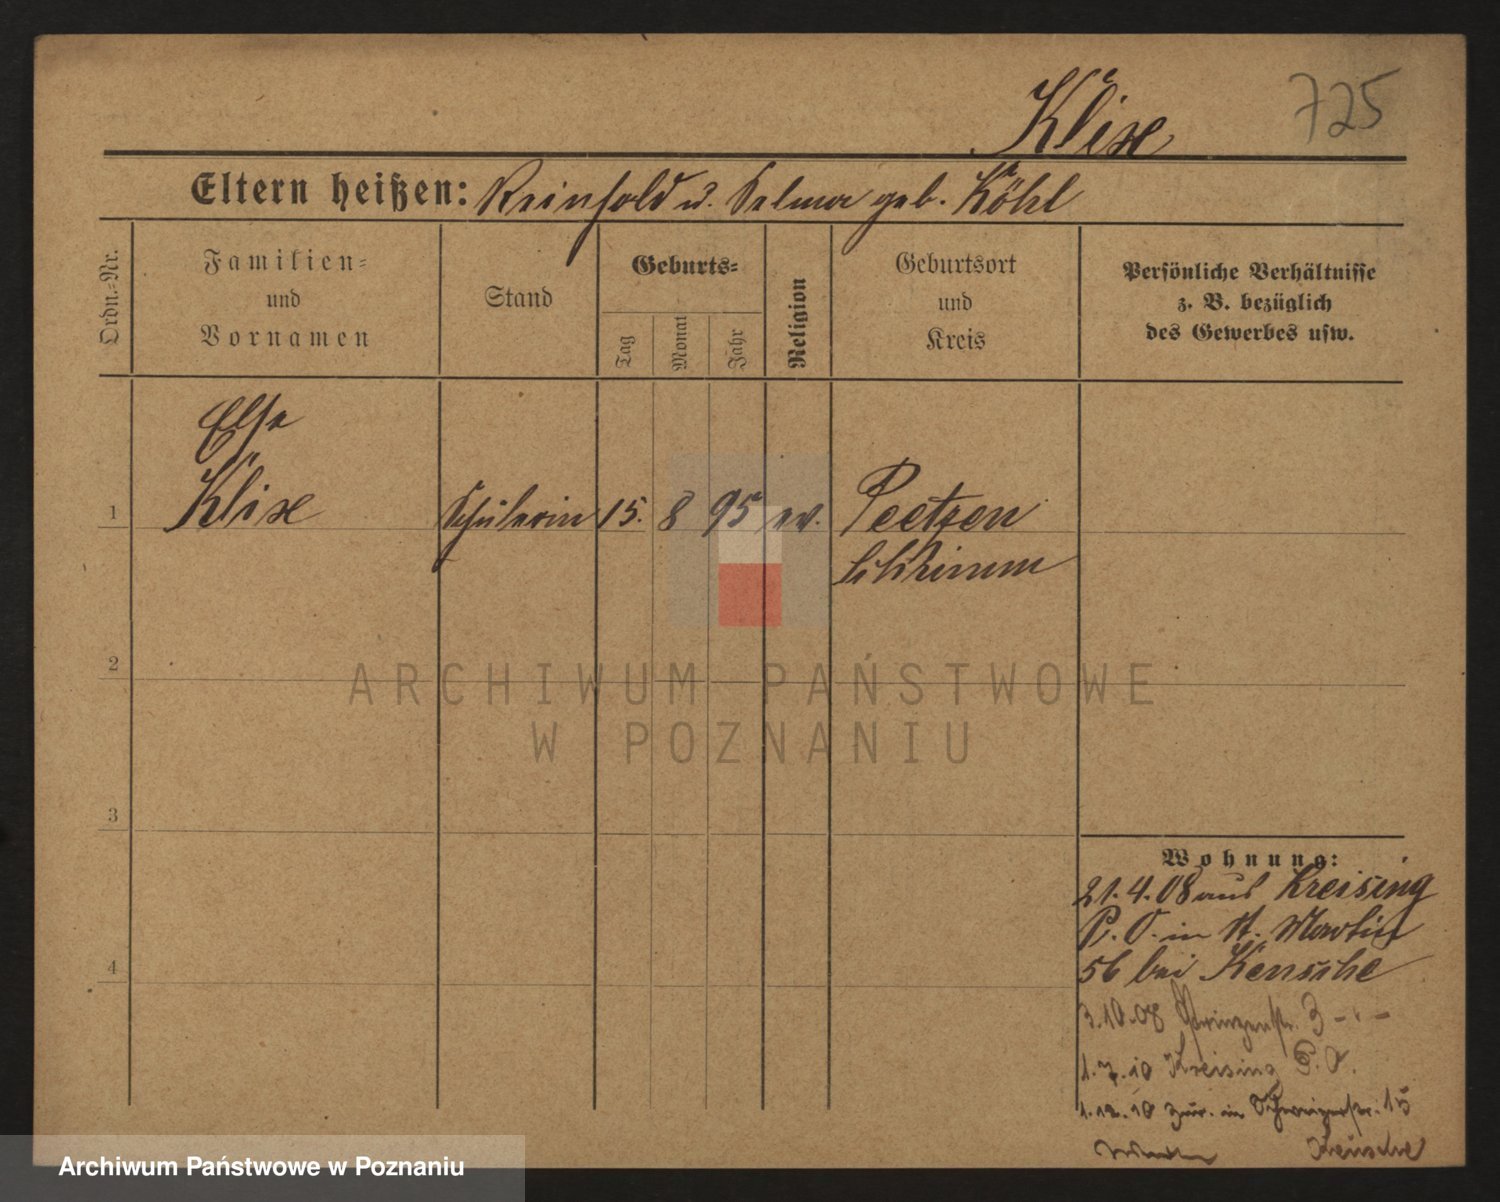 725
Klise
Eltern heißen: Reinhold u. Selma geb. Köhl
Ordn.-Nr.
Familien-
und
Vornamen
Stand
Geburts-
Tag
Monat
Jahr
Religion
Geburtsort
und
Kreis
Persönliche Verhältnisse
z. B. bezüglich
des Gewerbes usw.
Else
1 Klise Schülerin 15. 8 95 ev. Peetzen
Schrimm
2
ARCHIWUM PAŃSTWOWE
W POZNANIU
3
Wohnung:
21.4.08 aus Kreising
P. O. in St. Martin
4
56 bei Kensche
3.10.08 Prinzenstr. 3 - " -
1.7.10 Kreising P. O.
1.12.10 zur. in Schweizerstr. 15
Kensche
Archiwum Państwowe w Poznaniu